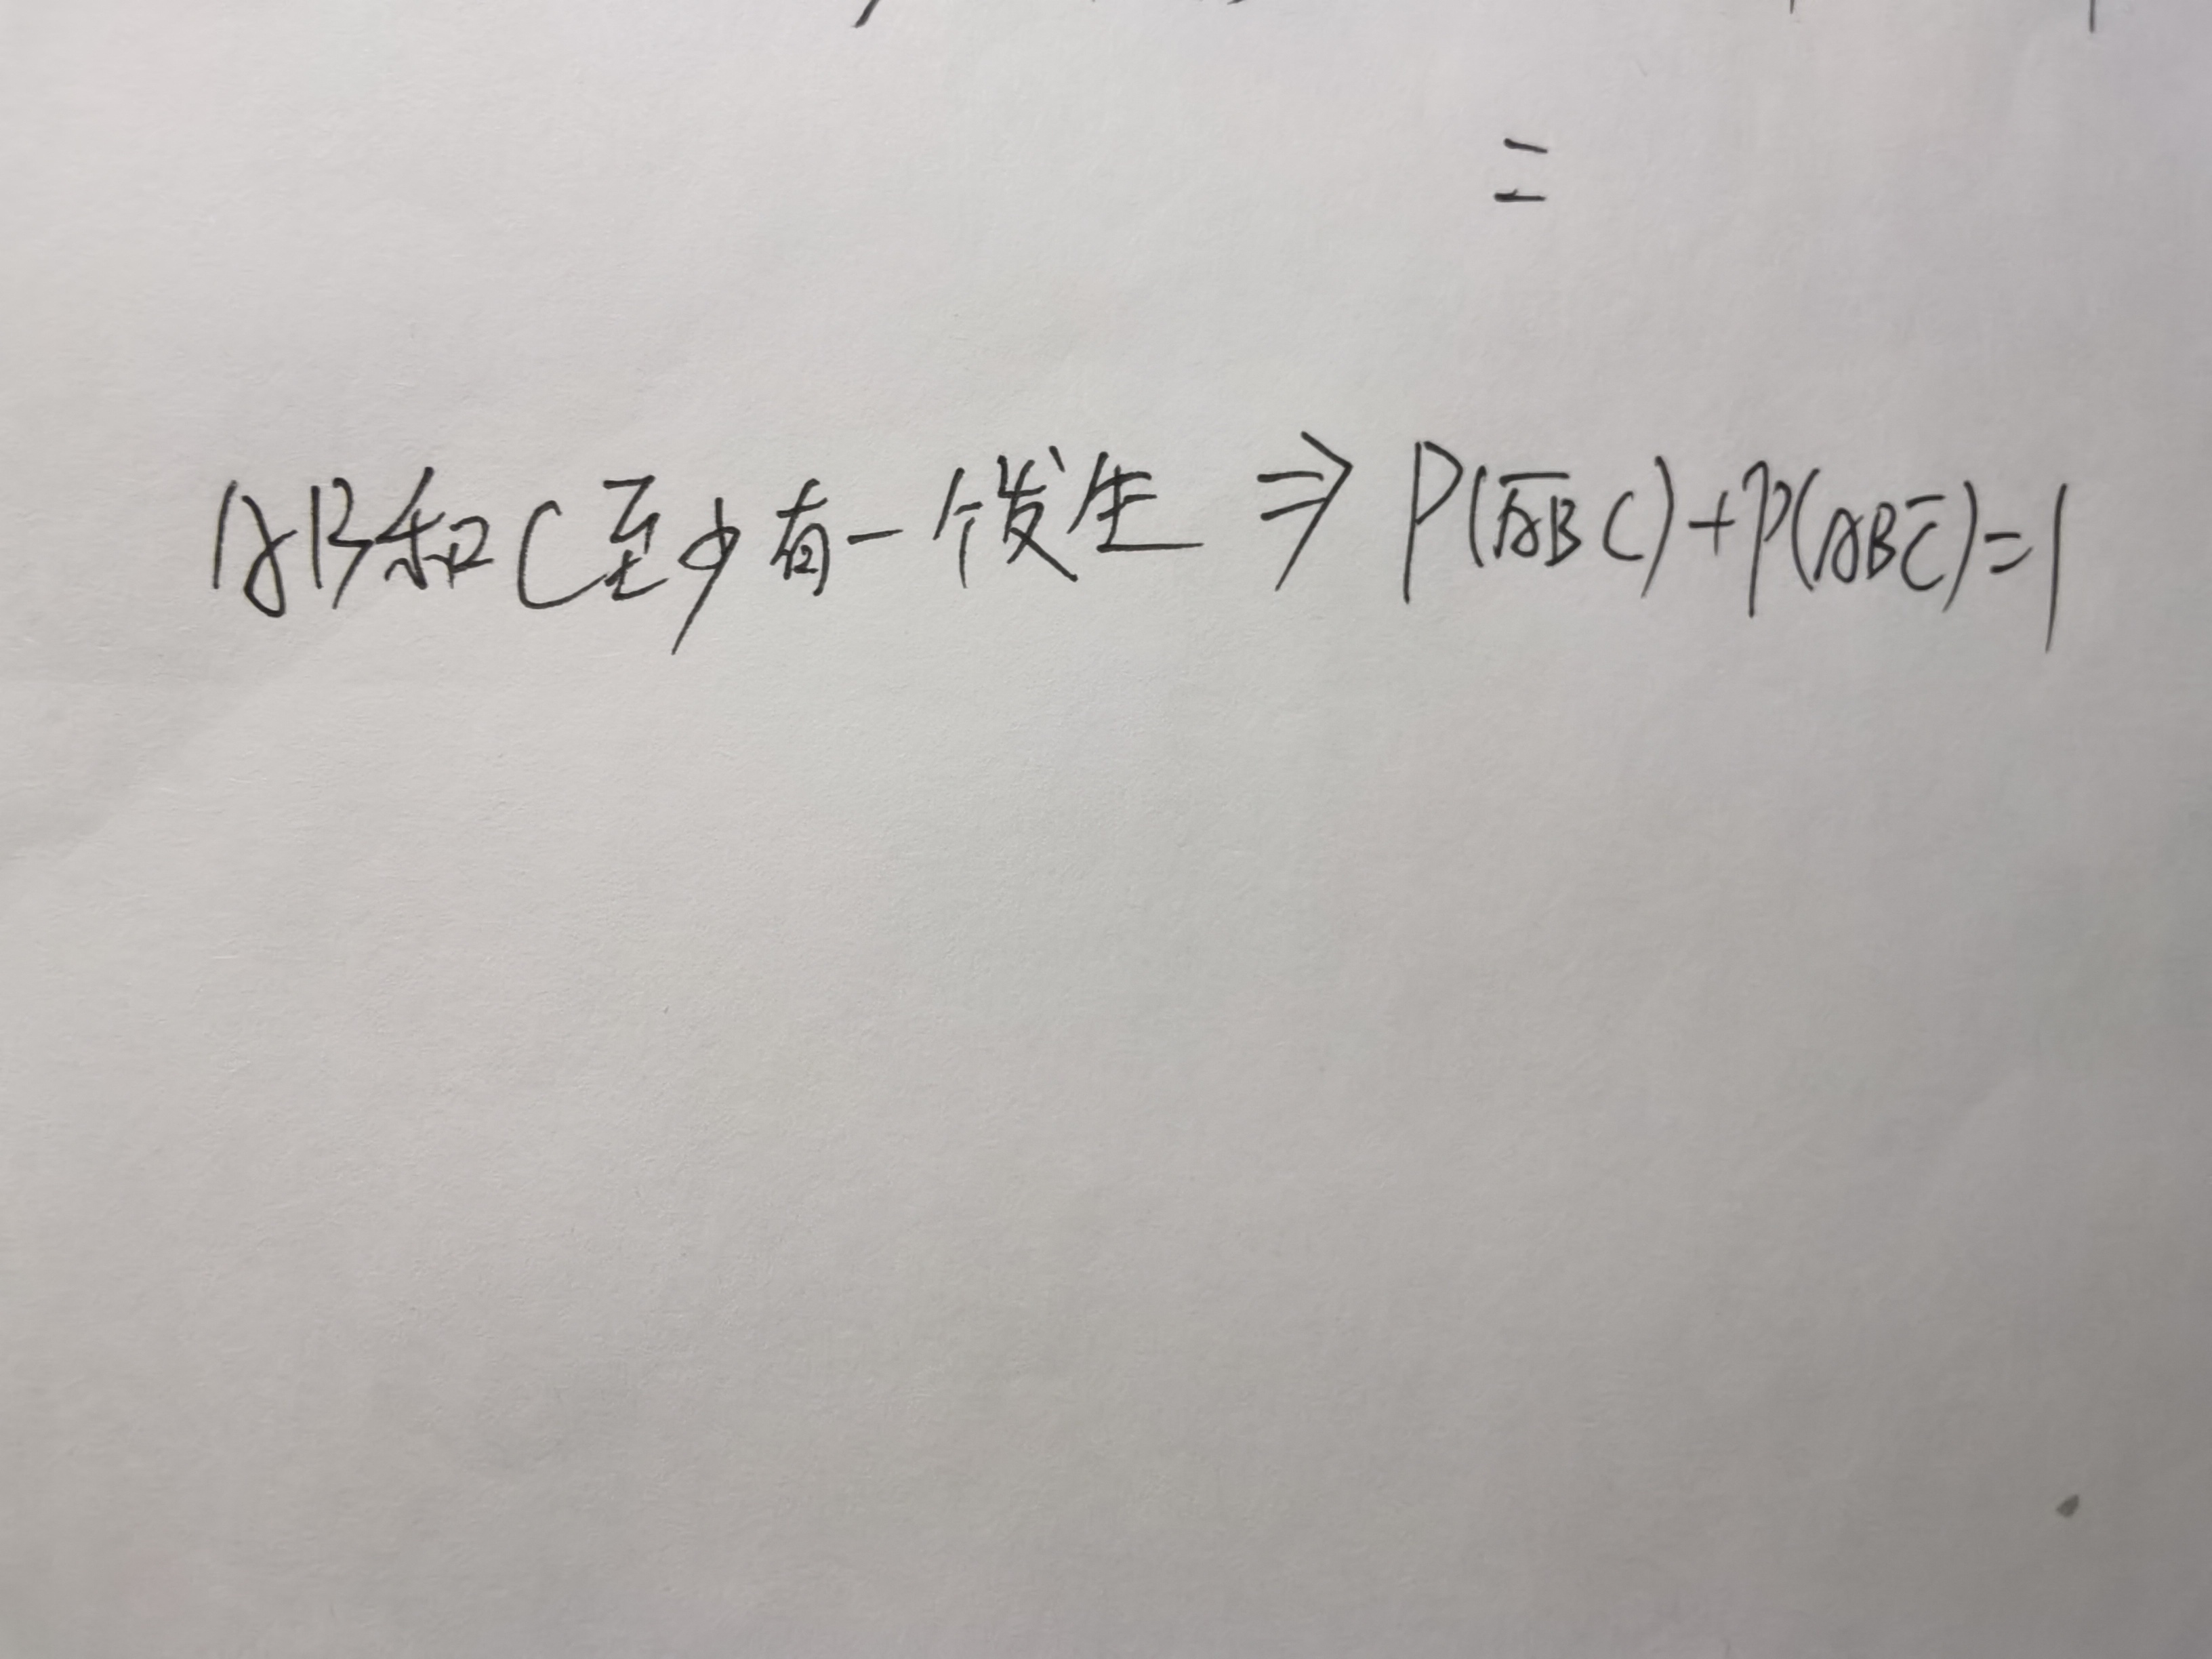 =
AB和C至少有一个发生 ⇒ P(A̅B̅C)+P(ABC̅)=1